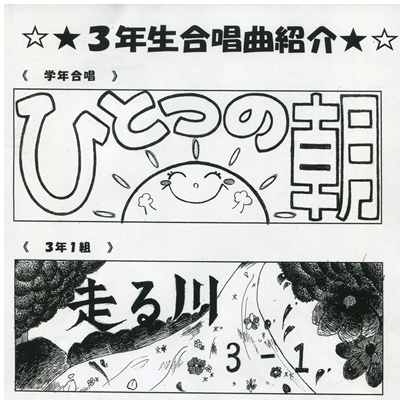 ☆★３年生合唱曲紹介★☆
《　学年合唱　》
ひとつの朝
《　３年１組　》
走る川
３－１